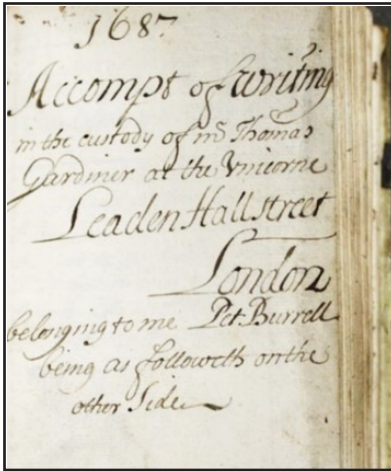 1687
Accompt of writing
in the custody of mr Thomas
Gardiner at the Unicorne
Leaden Hall street
London
belonging to me Pet Burrell
being as followeth on the
other Side